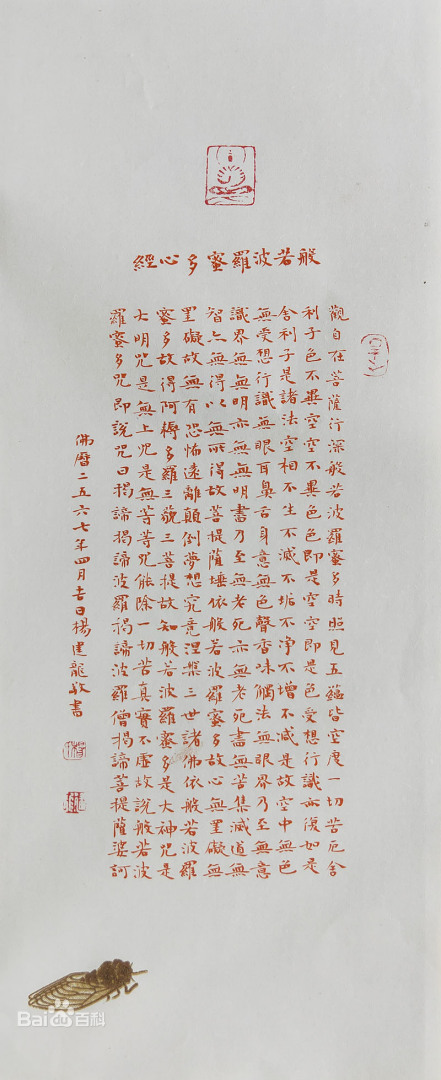 般若波羅蜜多心經
觀自在菩薩行深般若波羅蜜多時照見五蘊皆空度一切苦厄舍
利子色不異空空不異色色即是空空即是色受想行識亦復如是
舍利子是諸法空相不生不滅不垢不净不增不減是故空中無色
無受想行識無眼耳鼻舌身意無色聲香味觸法無眼界乃至無意
識界無無明亦無無明盡乃至無老死亦無老死盡無苦集滅道無
智亦無得以無所得故菩提薩埵依般若波羅蜜多故心無罣礙無
罣礙故無有恐怖遠離顛倒夢想究竟涅槃三世諸佛依般若波羅
蜜多故得阿耨多羅三藐三菩提故知般若波羅蜜多是大神咒是
大明咒是無上咒是無等等咒能除一切苦真實不虛故說般若波
羅蜜多咒即說咒曰揭諦揭諦波羅揭諦波羅僧揭諦菩提薩婆訶
佛曆二五六七年四月吉日楊建龍敬書
Bai百科